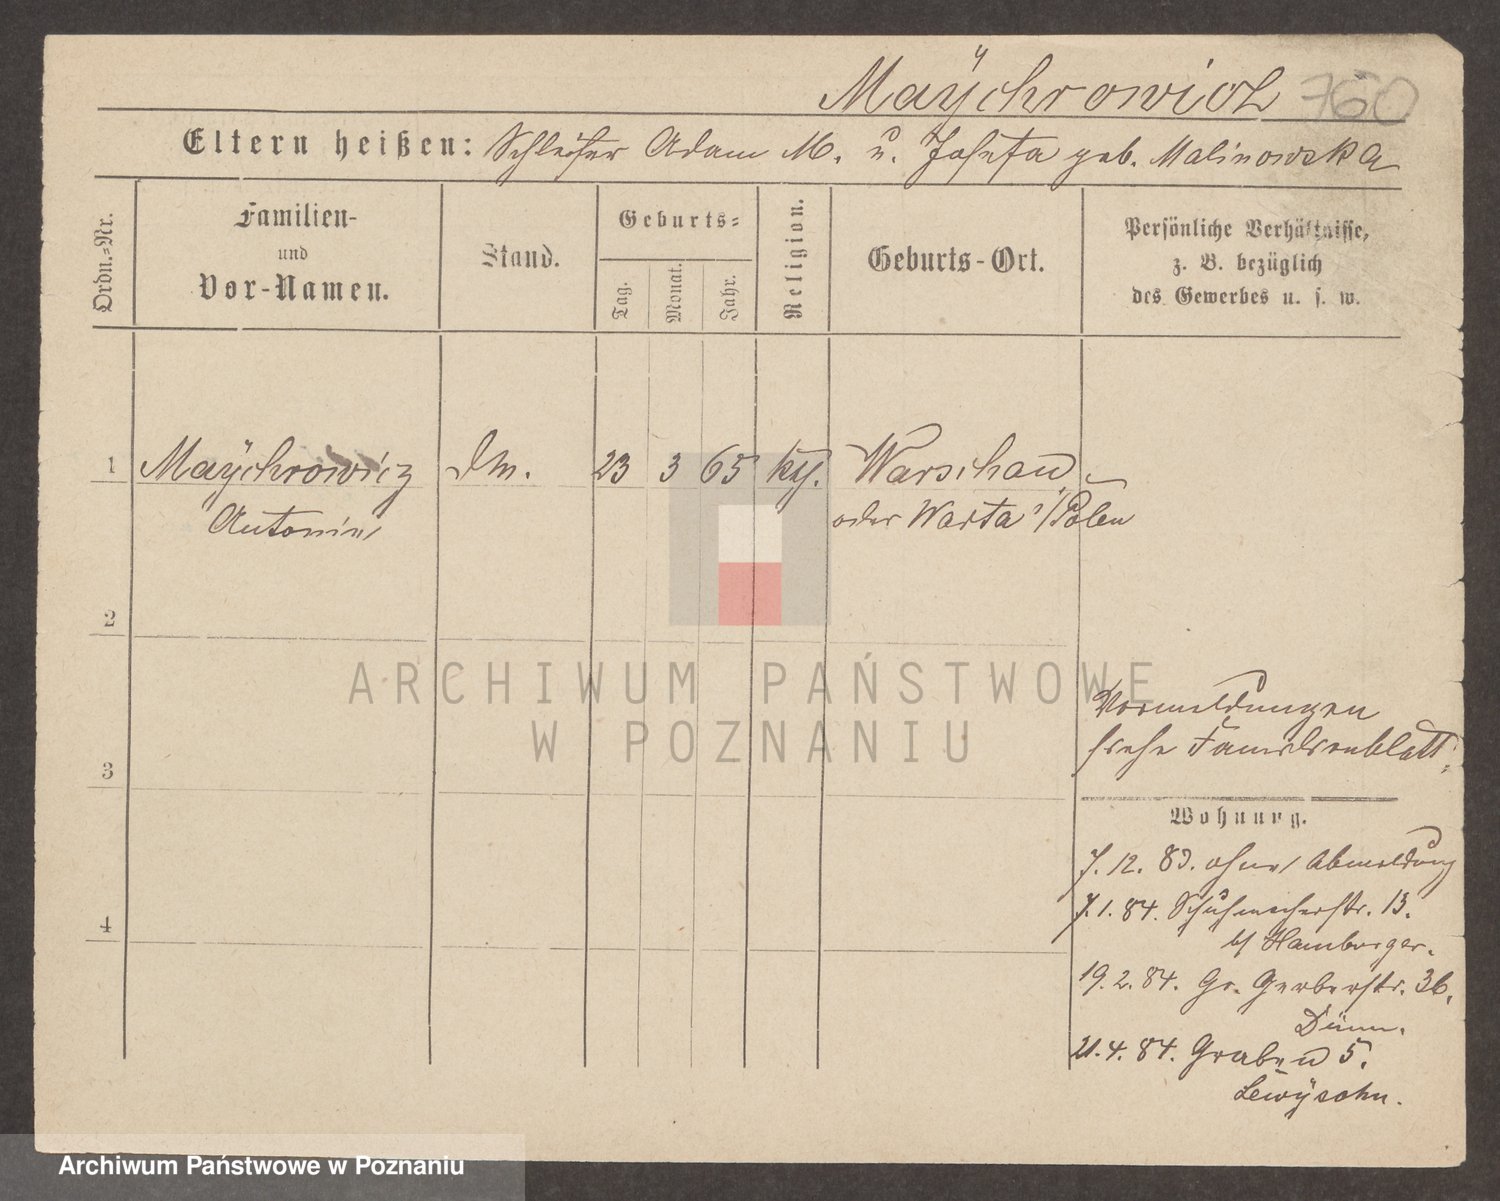 Maÿchrowicz 760
Eltern heißen: Schleifer Adam M. u. Josefa geb. Malinowska
Ordn.=Nr.
Familien-
und
Vor-Namen.
Stand.
Geburts=
Tag.
Monat.
Jahr.
Religion.
Geburts-Ort.
Persönliche Verhältnisse,
z. B. bezüglich
des Gewerbes u. s. w.
1 Maÿchrowicz 23 3 65 Warschau
Antonie oder Warta /Polen
2
3
4
ARCHIWUM PAŃSTWOWE
W POZNANIU
Vormeldungen
siehe Familienblatt.
Wohnung.
7. 12. 83. ohne Abmeldung
7. 1. 84. Schuhmacherstr. 13.
Hamburger.
19. 2. 84. Gr. Gerberstr. 36.
21. 4. 84. Graben 5.
Lewÿsohn.
Archiwum Państwowe w Poznaniu